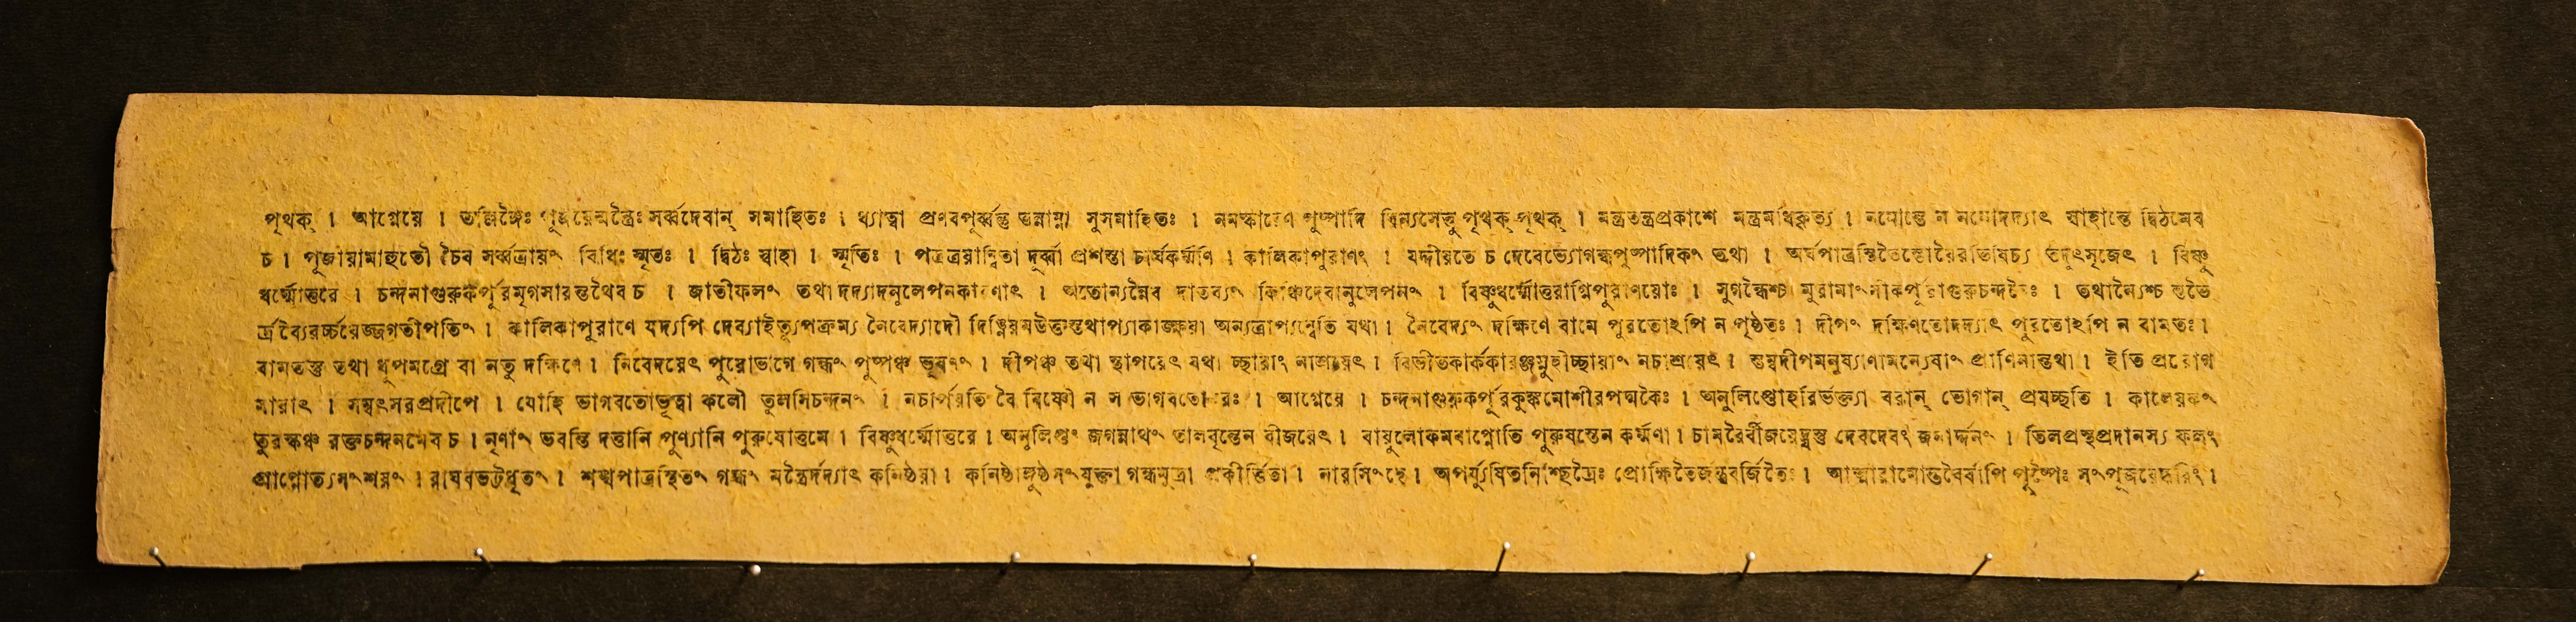 পৃথক্ । আগ্নেয়ে । তল্লিঙ্গৈঃ পূজয়েন্মন্ত্রৈঃ সর্ব্বদেবান্ সমাহিতঃ । ধ্যাত্বা প্রণবপূর্ব্বন্তু তন্নাম্না সুসমাহিতঃ । নমস্কারেণ পুষ্পাদি বিন্যসেত্তু পৃথক্ পৃথক্ । মন্ত্রতন্ত্রপ্রকাশে মন্ত্রমধিকৃত্য । নমোন্তে ন নমোদদ্যাৎ স্বাহান্তে দ্বিঠমেব
চ । পূজায়ামাহুতৌ চৈব সর্ব্বত্রায়ং বিধিঃ স্মৃতঃ । দ্বিঠঃ স্বাহা । স্মৃতিঃ । পত্রত্রয়ান্বিতা দূর্ব্বা প্রশস্তা চার্ঘকর্ম্মণি । কালিকাপুরাণং । যদ্দীয়তে চ দেবেভ্যোগন্ধপুষ্পাদিকং তথা । অর্ঘপাত্রস্থিতৈস্তোয়ৈরভিষিচ্য তদুৎসৃজেৎ । বিষ্ণু
ধর্ম্মোত্তরে । চন্দনাগুরুকর্পূরমৃগসারন্তথৈব চ । জাতীফলং তথা দদ্যাদনুলেপনকারণাৎ । অতোন্যন্নৈব দাতব্যং কিঞ্চিদেবানুলেপনং । বিষ্ণুধর্ম্মোত্তরাগ্নিপুরাণয়োঃ । সুগন্ধৈশ্চ মুরামাংসীকর্পূরাগুরুচন্দনৈঃ । তথান্যৈশ্চ শুভৈ
র্দ্রব্যৈরর্চ্চয়েজ্জগতীপতিং । কালিকাপুরাণে যদ্যপি দেব্যাইত্যুপক্রম্য নৈবেদ্যাদৌ দিঙ্নিয়মউক্তস্তথাপ্যাকাঙ্ক্ষয়া অন্যত্রাপ্যন্বেতি যথা । নৈবেদ্যং দক্ষিণে বামে পুরতোঽপি ন পৃষ্ঠতঃ । দীপং দক্ষিণতোদদ্যাৎ পুরতোঽপি ন বামতঃ ।
বামতস্তু তথা ধূপমগ্রে বা নতু দক্ষিণে । নিবেদয়েৎ পুরোভাগে গন্ধং পুষ্পঞ্চ ভূষণং । দীপঞ্চ তথা স্থাপয়েৎ যথা চ্ছায়াং নাশ্রয়েৎ । বিভীতকার্ককারঞ্জস্নুহীচ্ছায়াং নচাশ্রয়েৎ । স্তম্বদীপমনুষ্যাণামন্যেষাং প্রাণিনান্তথা । ইতি প্রয়োগ
সারাৎ । সম্বৎসরপ্রদীপে । যোহি ভাগবতোভূত্বা কলৌ তুলসিচন্দনং । নচার্পয়তি বৈ বিষ্ণৌ ন স ভাগবতো নরঃ । আগ্নেয়ে । চন্দনাগুরুকর্পূরকুঙ্কুমোশীরপদ্মকৈঃ । অনুলিপ্তোহরির্ভক্ত্যা বরান্ ভোগান্ প্রযচ্ছতি । কালেয়কং
তুরষ্কঞ্চ রক্তচন্দনমেব চ । নৃণাং ভবন্তি দত্তানি পুণ্যানি পুরুষোত্তমে । বিষ্ণুধর্ম্মোত্তরে । অনুলিপ্তং জগন্নাথং তালবৃন্তেন বীজয়েৎ । বায়ুলোকমবাপ্নোতি পুরুষস্তেন কর্ম্মণা । চামরৈর্বীজয়েদ্যস্তু দেবদেবং জনার্দ্দনং । তিলপ্রস্থপ্রদানস্য ফলং
প্রাপ্নোত্যসংশয়ং । রাঘবভট্টধৃতং । শঙ্খপাত্রস্থিতং গন্ধং মন্ত্রৈর্দদ্যাৎ কনিষ্ঠয়া । কনিষ্ঠাঙ্গুষ্ঠসংযুক্তা গন্ধমুদ্রা প্রকীর্ত্তিতা । নারসিংহে । অপর্য্যুষিতনিশ্ছিদ্রৈঃ প্রোক্ষিতৈর্জন্তুবর্জিতৈঃ । আত্মারামোদ্ভবৈর্বাপি পুষ্পৈঃ সংপূজয়েদ্ধরিং ।